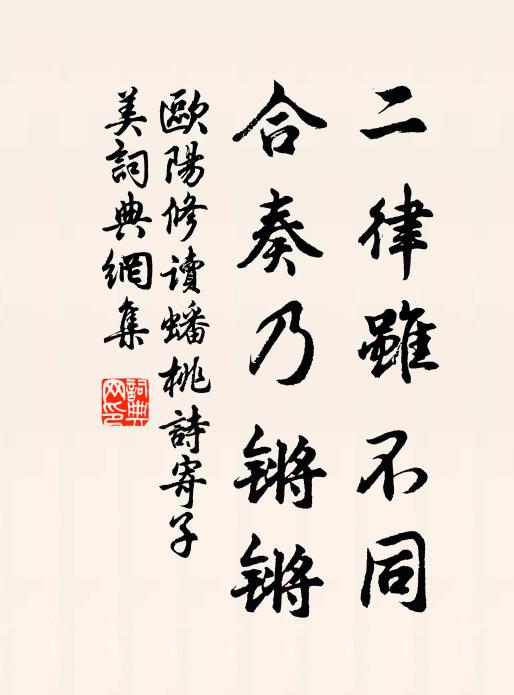 二律雖不同
合奏乃锵锵
歐陽修讀蟠桃詩寄子
美詞典網集
詞典
网印